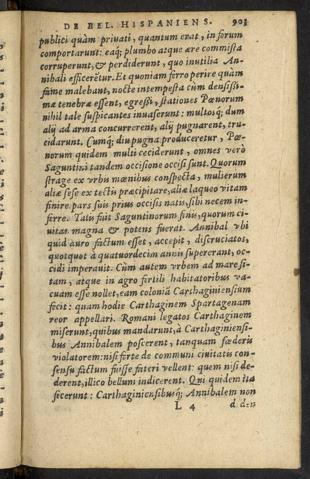 DE BEL. HISPANIENS. 903
publici quàm priuati, quantum erat, in forum
comportarunt: eaq́; plumbo atque ære commista
corruperunt, & perdiderunt, quo inutilia An-
nibali efficerētur. Et quoniam ferro perire quàm
fame malebant, nocte intempesta cùm densissi-
mæ tenebræ essent, egressi, stationes Pœnorum
nihil tale suspicantes inuaserunt: multosq́; dum
alij ad arma concurrerent, alij pugnarent, tru-
cidarunt. Cumq́; diu pugna produceretur, Pœ-
norum quidem multi ceciderunt, omnes verò
Saguntini tandem occisione occisi sunt. Quorum
strage ex vrbis mœnibus conspecta, mulierum
aliæ sese ex tectis præcipitare, aliæ laqueo vitam
finire. pars suis prius occisis natis, sibi necem in-
ferre. Talis fuit Saguntinorum finis, quorum ci-
uitas magna & potens fuerat. Annibal vbi
quid auro factum esset, accepit, discruciatos,
quotquot à quatuordecim annis supererant, oc-
cidi imperauit. Cùm autem vrbem ad mare si-
tam, atque in agro fertili habitatoribus va-
cuam esse nollet, eam coloniā Carthaginensium
fecit: quam hodie Carthaginem Spartagenam
reor appellari. Romani legatos Carthaginem
miserunt, quibus mandarunt, à Carthaginiensi-
bus Annibalem poscerent, tanquam fœderis
violatorem: nisi forte de communi ciuitatis con-
sensu factum fuisse fateri vellent: quem nisi de-
derent, illico bellum indicerent. Qui quidem ita
fecerunt: Carthaginensibusq́; Annibalem non
L 4 deden